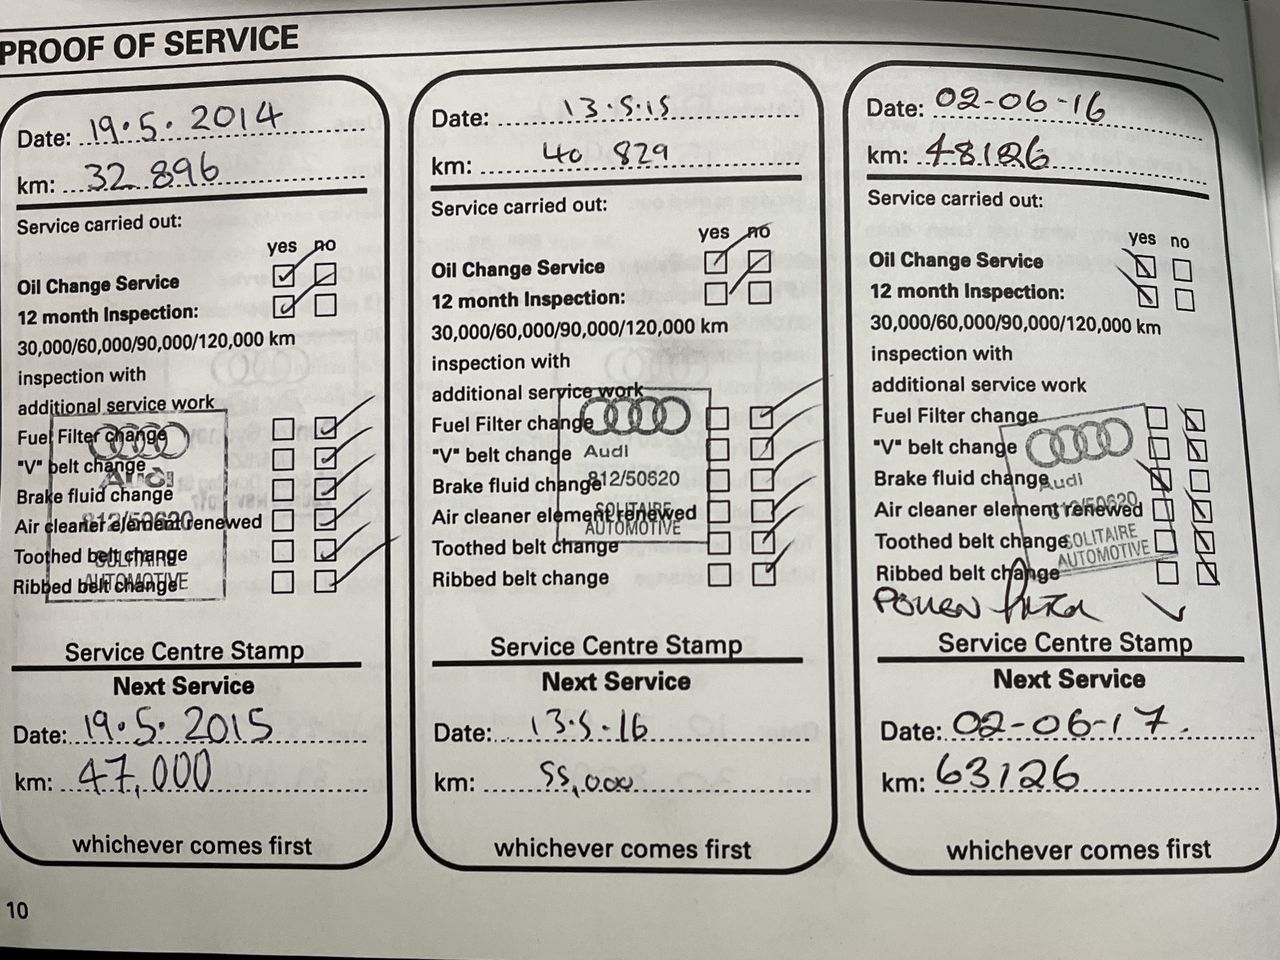 PROOF OF SERVICE
Date: 19.5.2014
km: 32 896
Service carried out:
yes no
Oil Change Service
12 month Inspection:
30,000/60,000/90,000/120,000 km
inspection with
additional service work
Fuel Filter change
"V" belt change
Brake fluid change
Air cleaner element renewed
Toothed belt change
Ribbed belt change
Audi
812/50620
SOLITAIRE
AUTOMOTIVE
Service Centre Stamp
Next Service
Date: 19.5.2015
km: 47,000
whichever comes first
Date: 13.5.15
km: 40 829
Service carried out:
yes no
Oil Change Service
12 month Inspection:
30,000/60,000/90,000/120,000 km
inspection with
additional service work
Fuel Filter change
"V" belt change
Brake fluid change
Air cleaner element renewed
Toothed belt change
Ribbed belt change
Audi
812/50620
SOLITAIRE
AUTOMOTIVE
Service Centre Stamp
Next Service
Date: 13.5.16
km: 55,000
whichever comes first
Date: 02-06-16
km: 48126
Service carried out:
yes no
Oil Change Service
12 month Inspection:
30,000/60,000/90,000/120,000 km
inspection with
additional service work
Fuel Filter change
"V" belt change
Brake fluid change
Air cleaner element renewed
Toothed belt change
Ribbed belt change
POLLEN FILTER
Audi
812/50620
SOLITAIRE
AUTOMOTIVE
Service Centre Stamp
Next Service
Date: 02-06-17.
km: 63126
whichever comes first
10